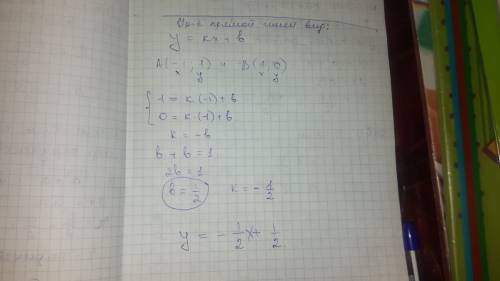 Ур-е прямой имеет вид:
y = kx + b
A(-1, 1) и B(1, 0)
x y x y
1 = k·(-1)+b
0 = k·(-1)+b
k = -b
b + b = 1
2b = 1
b = 1/2 k = - 1/2
y = - 1/2 x + 1/2